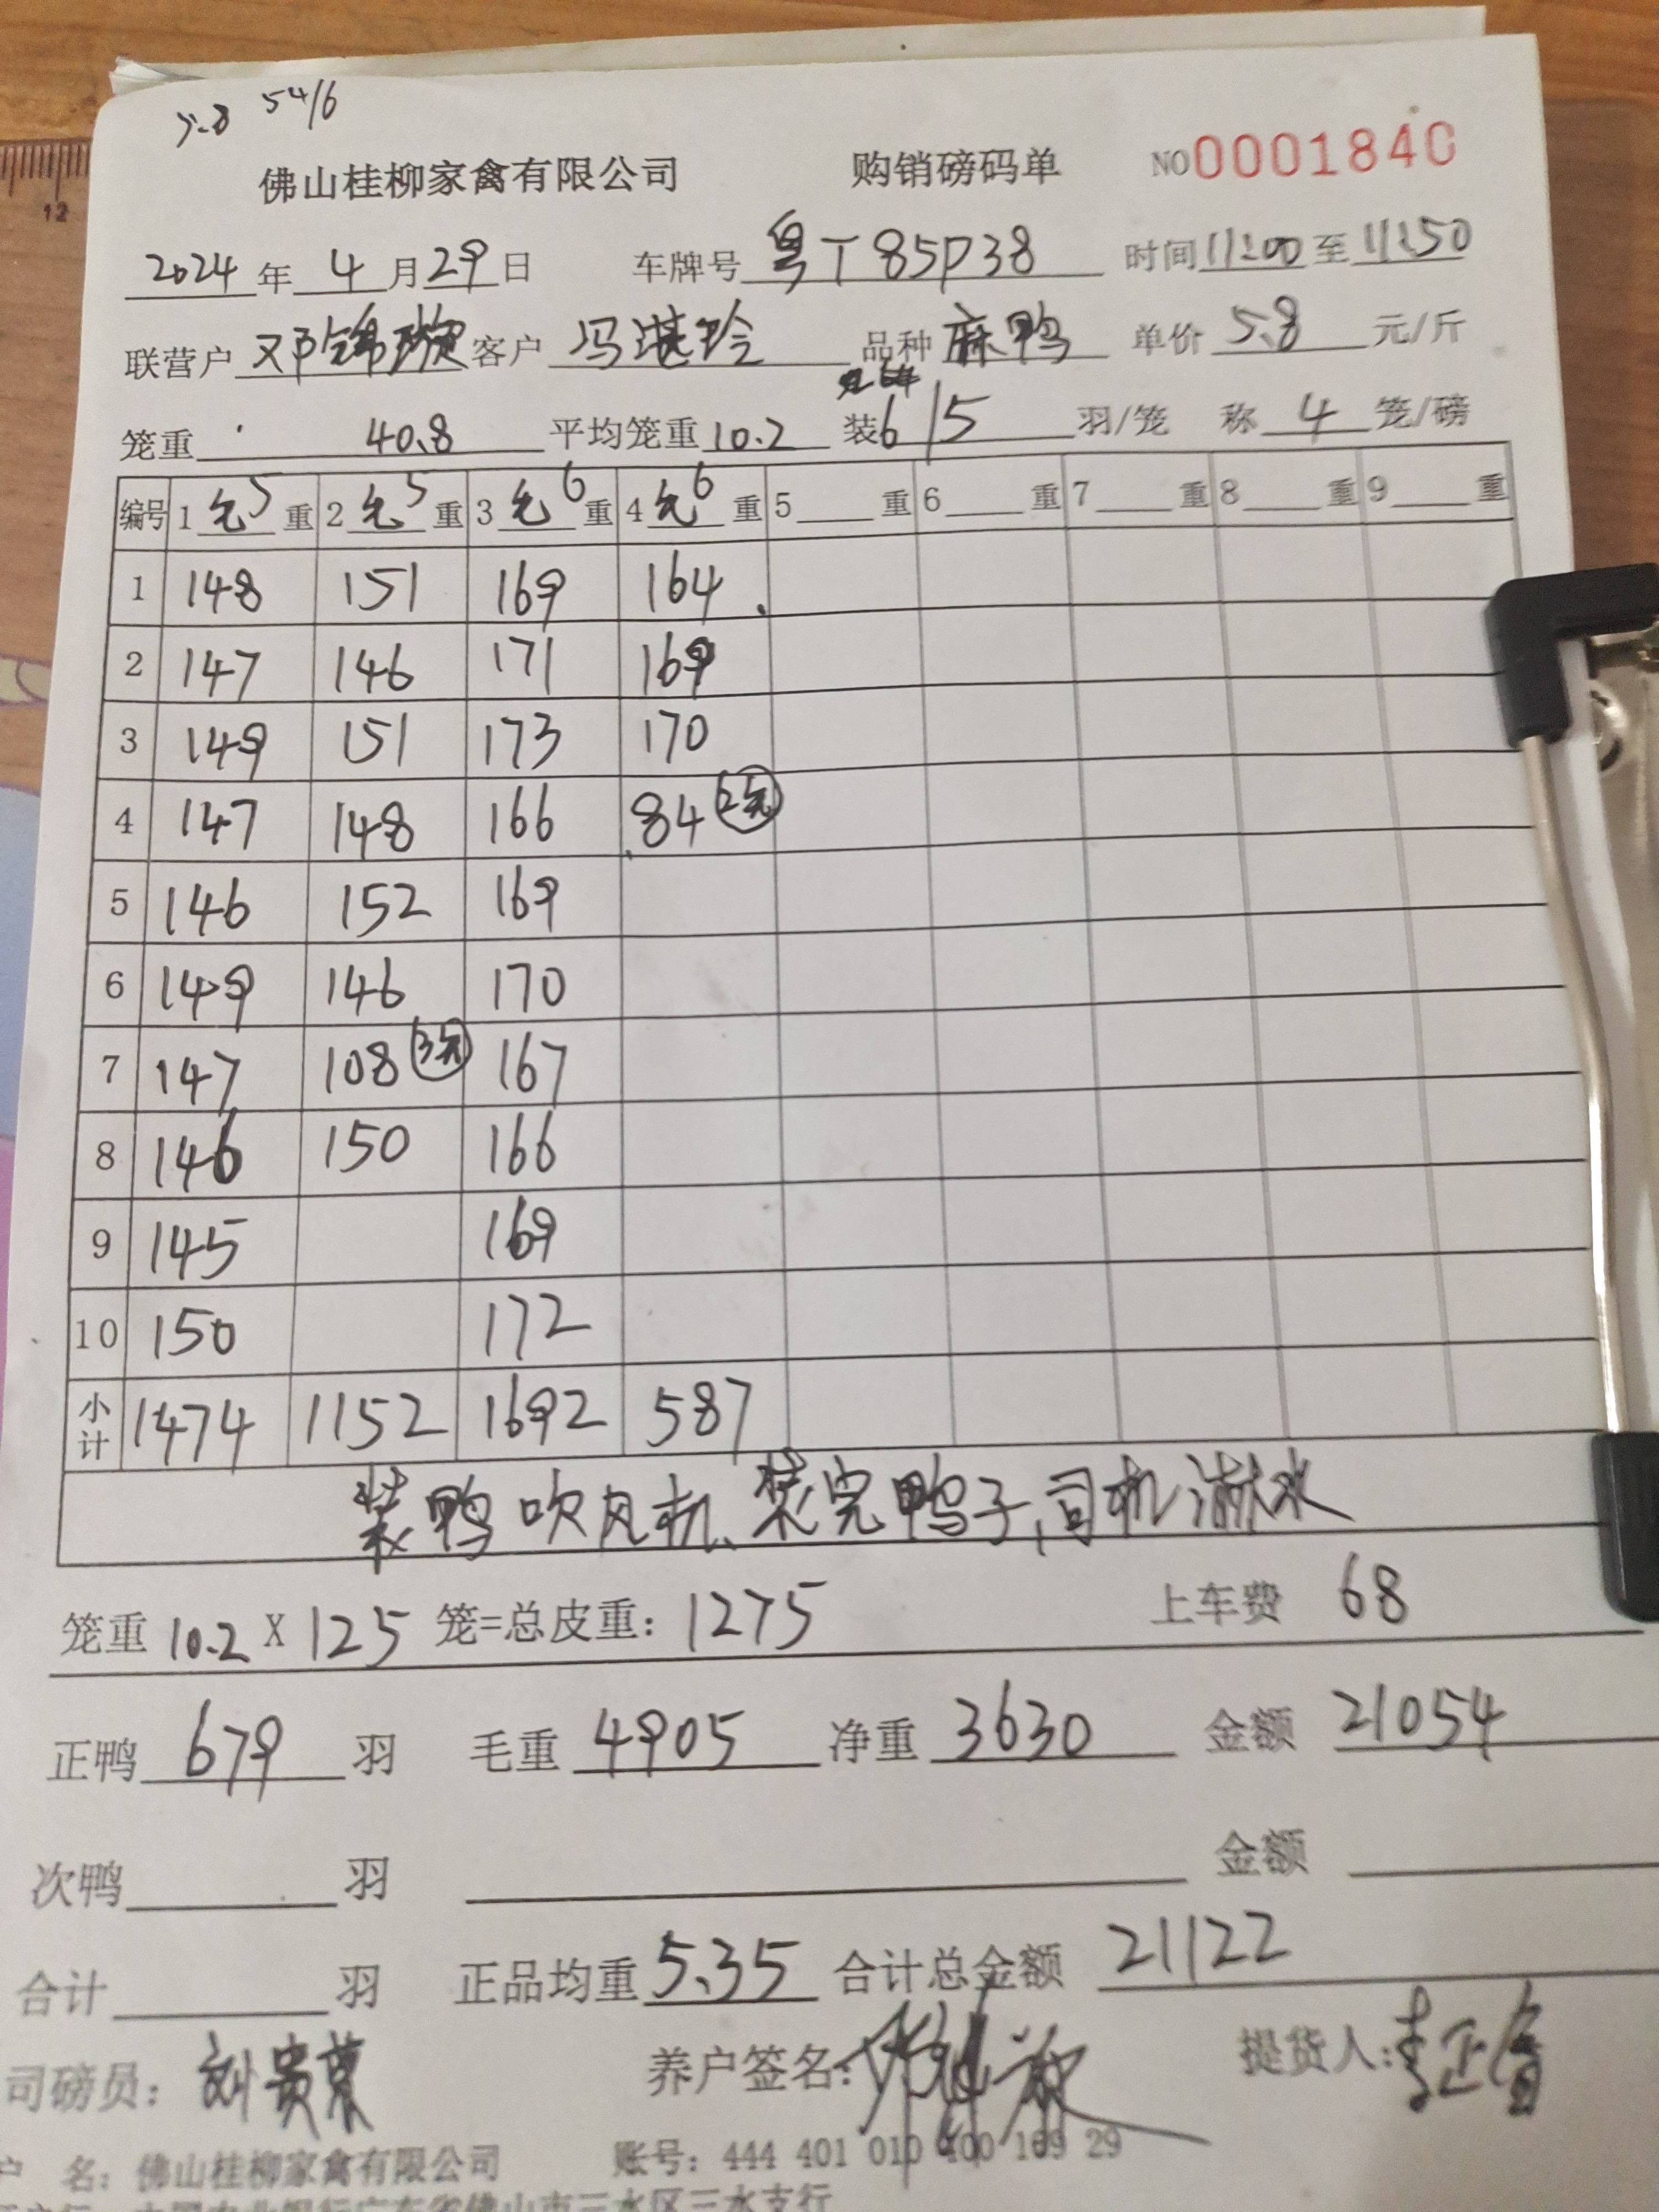 5.8 54/6
佛山桂柳家禽有限公司 购销磅码单 NO0001840
2024年4月29日 车牌号 粤T85P38 时间11:00至11:50
联营户 邓锦璇 客户 冯湛玲 品种 麻鸭 单价 5.8 元/斤
笼重 40.8 平均笼重 10.2 装 6/5 羽/笼 称 4 笼/磅
编号 1 毛5 重 2 毛5 重 3 毛6 重 4 毛6 重 5 重 6 重 7 重 8 重 9 重
1 148 151 169 164
2 147 146 171 169
3 149 151 173 170
4 147 148 166 84
5 146 152 169
6 149 146 170
7 147 108 167
8 146 150 166
9 145 169
10 150 172
小计 1474 1152 1692 587
装鸭吹风机、装完鸭子,司机淋水
笼重 10.2 X 125 笼=总皮重: 1275 上车费 68
正鸭 679 羽 毛重 4905 净重 3630 金额 21054
次鸭 羽 金额
合计 羽 正品均重 5.35 合计总金额 21122
司磅员: 刘贵 养户签名: 提货人:李正
户 名: 佛山桂柳家禽有限公司 账号: 444 401 010 400 169 29
中国农业银行广东省佛山市三水区三水支行